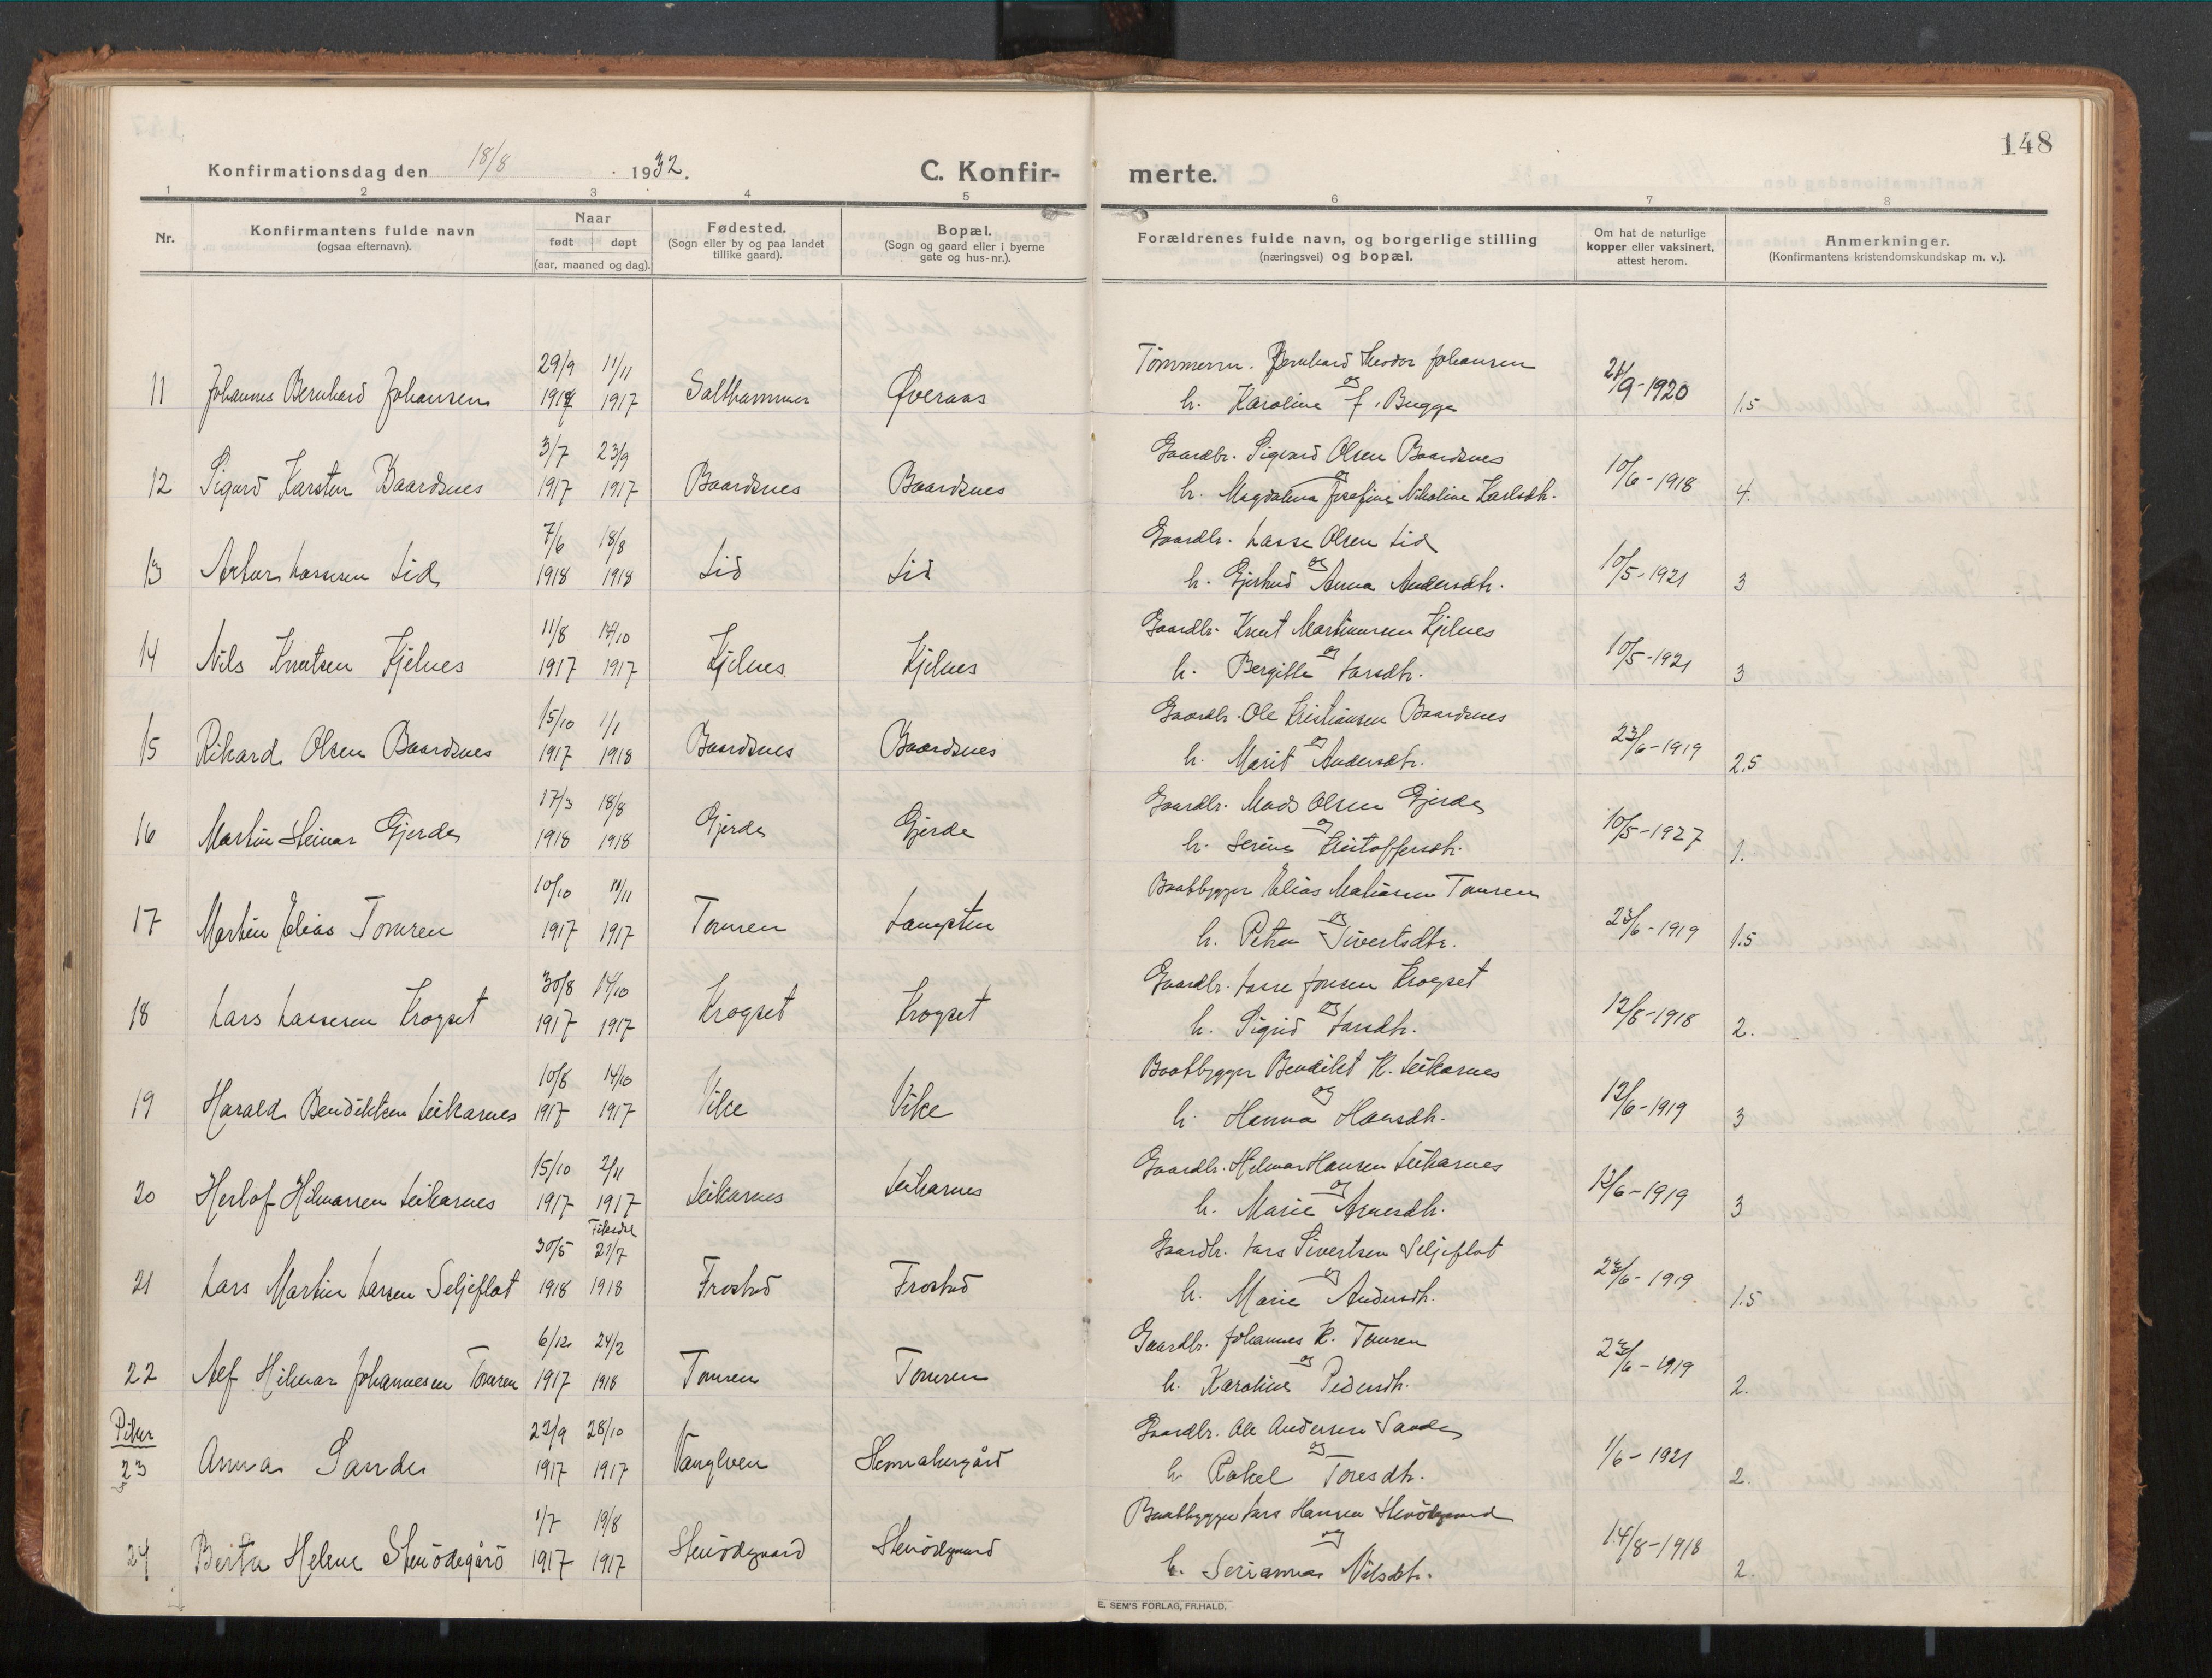 148
Konfirmationsdag den 18/8 1932.
C. Konfir-merte.
1 2 3 4 5 6 7 8
Nr.
Konfirmantens fulde navn
(ogsaa efternavn).
Naar
født døpt
(aar, maaned og dag).
Fødested.
(Sogn eller by og paa landet
tillike gaard).
Bopæl.
(Sogn og gaard eller i byerne
gate og hus-nr.).
Forældrenes fulde navn, og borgerlige stilling
(næringsvei) og bopæl.
Om hat de naturlige
kopper eller vaksinert,
attest herom.
Anmerkninger.
(Konfirmantens kristendomskundskap m. v.).
29/9 11/11 Tömmerm. Bernhard Teodor Johansen
og
11 Johannes Bernhard Johansen 1917 1917 Salthammer Øveraas h. Karoline f. Bugge 9-1920 1.5
3/7 23/9 Gaardbr. Sigvard Olsen Baardsnes
og
12 Sigurd Karsten Baardsnes 1917 1917 Baardsnes Baardsnes h. Magdalena Josefine Nikoline Karlsdtr. 10/6-1918 4.
7/6 18/8 Gaardbr. Lasse Olsen Lid
og
13 Artur Lassesen Lid 1918 1918 Lid Lid h. Gjertrud Anna Andersdtr. 10/5-1921 3
11/8 14/10 Gaardbr. Knut Martinusen Kjelnes
og
14 Nils Knutsen Kjelnes 1917 1917 Kjelnes Kjelnes h. Bergitte Larsdtr. 10/5-1921 3
15/10 1/1 Gaardbr. Ole Kristiansen Baardsnes
og
15 Rikard Olsen Baardsnes 1917 1918 Baardsnes Baardsnes h. Marit Andersdtr. 23/6-1919 2.5
17/3 18/8 Gaardbr. Mads Olsen Gjerde
og
16 Martin Steinar Gjerde 1918 1918 Gjerde Gjerde h. Serine Kristoffersdtr. 10/5-1927 1.
10/10 11/11 Baatbygger Elias Matiasen Tomren
og
17 Martin Elias Tomren 1917 1917 Tomren Langsten h. Petra Sivertsdtr. 23/6-1919 1.5
30/8 14/10 Gaardbr. Lasse Jonsen Krogset
og
18 Lars Lassesen Krogset 1917 1917 Krogset Krogset h. Sigrid Larsdtr. 12/8-1918 2.
10/8 14/10 Baatbygger Bendikt K. Leikarnes
og
19 Harald Bendiktsen Leikarnes 1917 1917 Vike Vike h. Hanna Hansdtr. 12/6-1919 3
15/10 2/11 Gaardbr. Hilmar Hansen Leikarnes
og
20 Herlof Hilmarsen Leikarnes 1917 1917 Leikarnes Leikarnes h. Marie Arnesdtr. 12/6-1919 3
Fiksdal
30/5 21/7 Gaardbr. Lars Sivertsen Seljeflot
og
21 Lars Martin Larsen Seljeflot 1918 1918 Frostad Frostad h. Marie Andersdtr. 23/6-1919 1.5
6/12 24/2 Gaardbr. Johannes K. Tomren
og
22 Alf Hilmar Johannesen Tomren 1917 1918 Tomren Tomren h. Karoline Pedersdtr. 23/6-1919 2.
Piker
23/9 28/10 Gaardbr. Ole Andersen Sande
og
23 Anna Sande 1917 1917 h. Rakel Toresdtr. 1/6-1921 2.
1/7 19/8 Baatbygger Lars Hansen Stenödegaard
og
24 Berta Helene Stenödegård 1917 1917 Stenödgaard Stenödgaard h. Serianna Nilsdtr. 14/8-1918 2.
E. SEM'S FORLAG, FR.HALD.